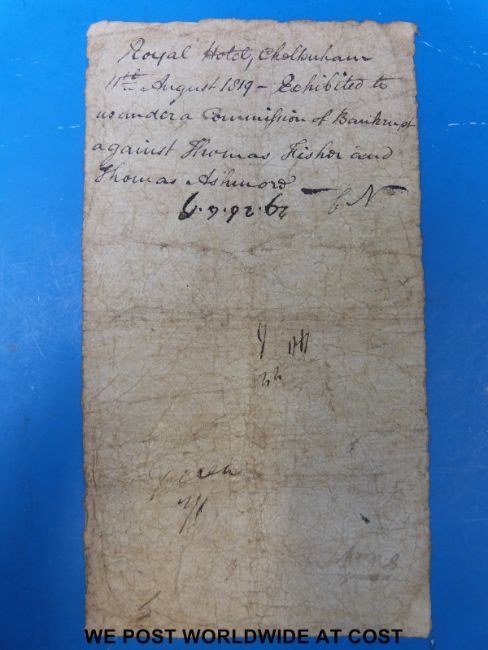 Royal Hotel, Cheltenham
11th August 1819 - Exhibited to
us under a Commission of Bankrupt
against Thomas Fisher and
Thomas Ashmore
WE POST WORLDWIDE AT COST